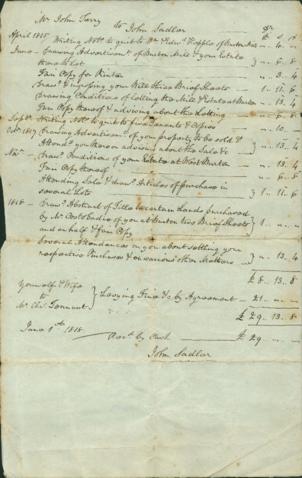 Mr John Tarry
To John Sadlar Dr
£ s d
April 1815 Writing Notice to quit to Mr &
4
June Drawing Advertisemt of Burton Mill & your Estate
there to let 6. 8
Fair Copy for Printer 3. 4
Drawg & Ingrossing your Mill three Brief Sheets 1. 11. 6
Drawing Conditions of letting the Mill & Estate at Burton 13. 4
Fair Copy thereof & advising about the Letting 6. 8
Septr Writing Notice to quit to five Tenants & Copies 10
Octr 1817 Drawing Advertisemt of your property to be sold &
Attendg you thereon advising about the Sale &c 13. 4
Novr Drawg Conditions of your Estates at West Burton 13. 4
Fair Copy thereof 6. 8
Attending Sale & drawg Articles of purchase in
several Lots 1. 11. 6
1818 Drawg Abstract of Title to certain Lands purchased
by Mr of you at Burton two Brief Sheets
and an half & fair Copy 1
Several Attendances on you about settling your
respective Purchases & on various other Matters 13. 4
£ 8. 13. 8
Yourself & Wife
to
Mr Chr. Tennant
Levying Fine &c by Agreement 21
£ 29. 13. 8
June 1st 1818 Recd by Cash £ 29
John Sadlar